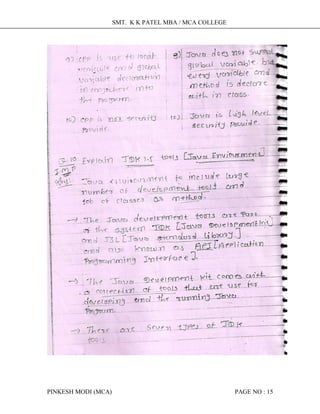 SMT. K K PATEL MBA / MCA COLLEGE
9) CPP is use to local
variable and global
variable declaration
in anywhere into
the program.
9) Java does not support
global variable but
every variable and
method is declare
with in class.
10) CPP is not security
Provide.
10) Java is high level
security provide.
Q-10 Explain JDK 1.5 tools [Java Environment]
IMP
Java environment to include large
number of development tools and
set of classes as method.
→ The Java development tools are Part
of the system JDK [Java Development kit]
and JSL [Java standard library]
and also known as API [Application
Programming Interface].
→ The Java Development kit comes with
a collection of tools that are use for
developing and the running Java
Program.
→ There are Seven types of JDK
tools.
PINKESH MODI (MCA)
PAGE NO : 15